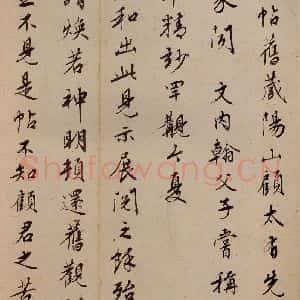 帖舊藏陽山顧太有先
家聞 文內翰父子嘗稱
精妙罕觀今夏
和出此見示展閱之餘殆
煥若神明頓還舊觀
不見是帖不知顧君之苦
Shufawang.CN